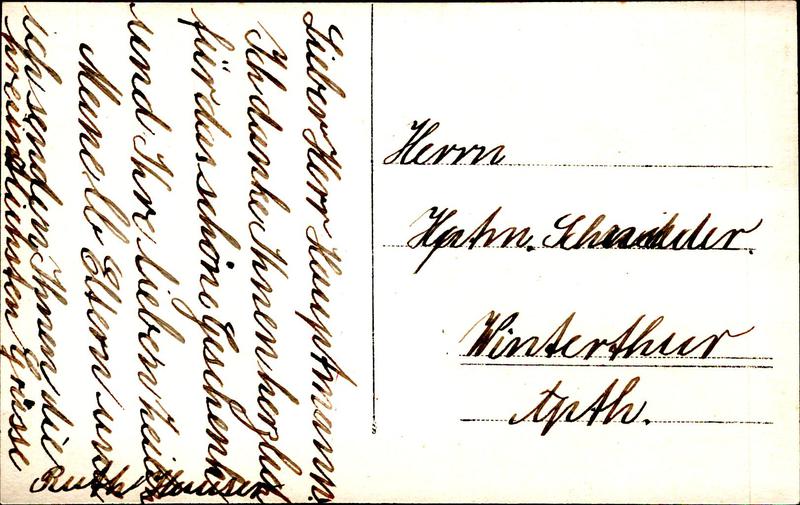 Lieber Herr Hauptmann.
Ich danke Ihnen herzlich
für das schöne Geschenk
und Ihre lieben Zeilen
Meine lb Eltern und
ich senden Ihnen die
freundlichsten Grüsse
Ruth Hauser
Herrn
Hptm.
Winterthur
Apth.